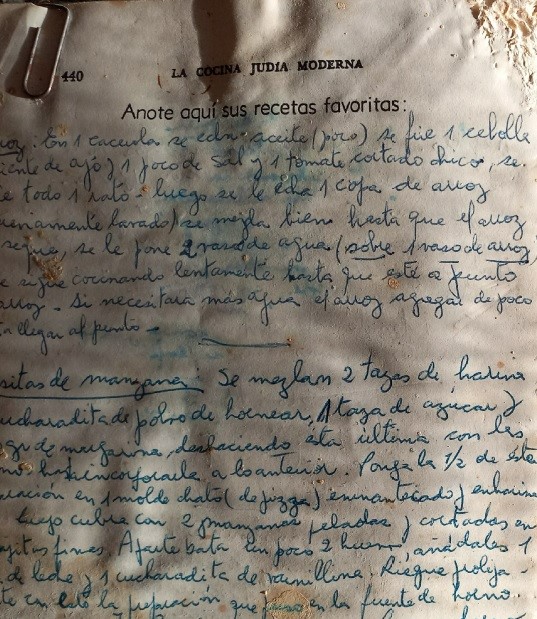 440 LA COCINA JUDIA MODERNA
Anote aquí sus recetas favoritas:
En 1 cacerola se echa aceite (poco) se frie 1 cebolla
diente de ajo y 1 poco de sal y 1 tomate cortado chico, se
todo 1 rato - luego se le echa 1 copa de arroz
lavado) se mezcla bien hasta que el arroz
seque, se le pone 2 vasos de agua (sobre 1 vaso de arroz,
se sigue cocinando lentamente hasta que esté a punto
arroz - Si necesitara más agua el arroz agregar de poco
a llegar al punto -
sitas de manzana: Se mezclan 2 tazas de harina
cucharadita de polvo de hornear, 1 taza de azúcar y
gr de margarina, deshaciendo esta última con las
hasta incorporarla a lo anterior. Ponga la 1/2 de esta
paración en 1 molde chato (de pizza) enmantecado y enharina
Luego cubra con 2 manzanas peladas y cortadas en
jitas finas. Aparte bata un poco 2 huevos, añádales 1
de leche y 1 cucharadita de vainillina. Riegue prolija-
te con esto la preparación que puso en la fuente de horno.